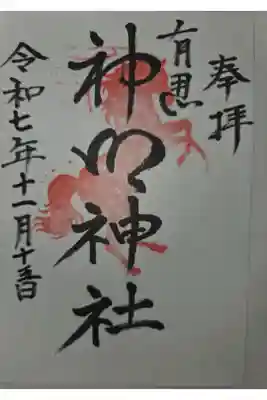 奉拝
神明神社
令和七年十一月十五日